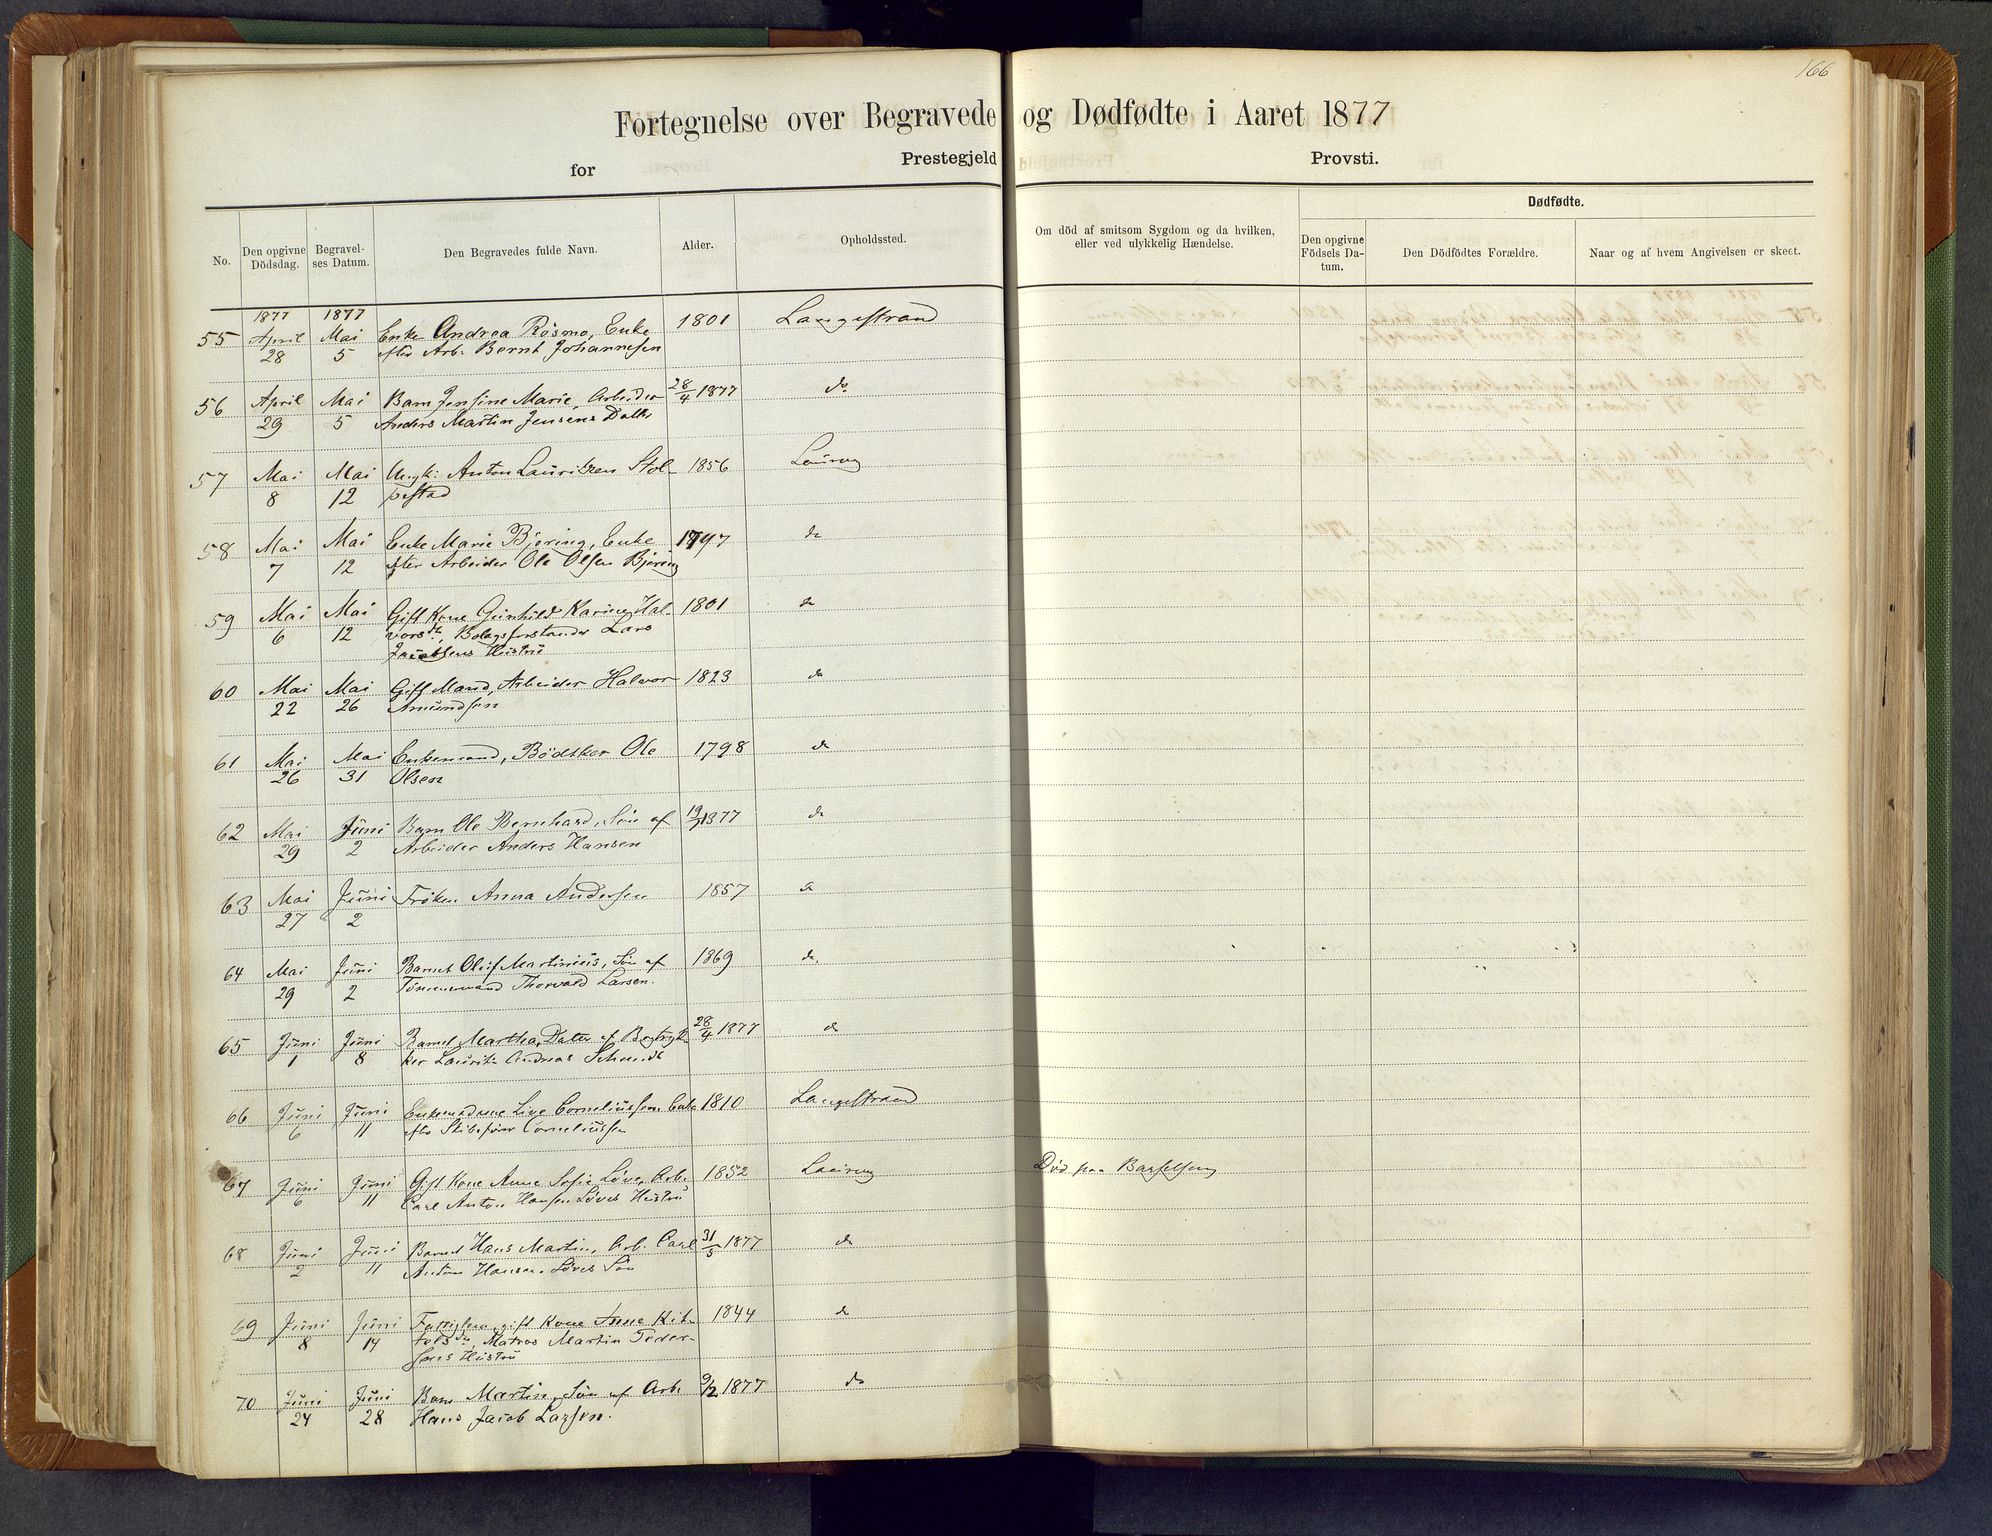 166
Fortegnelse over Begravede og Dødfødte i Aaret 1877
for Prestegjeld Provsti.
No.
Den opgivne Dödsdag.
Begravelses Datum.
Den Begravedes fulde Navn.
Alder.
Opholdssted.
Om död af smitsom Sygdom og da hvilken, eller ved ulykkelig Hændelse.
Dødfødte.
Den opgivne Födsels Datum.
Den Dödfödtes Forældre.
Naar og af hvem Angivelsen er skeet.
1877 1877
55 April Mai Enke Andrea Røsmo, Enke 1801 Langestrand
28 5 efter Arb. Bernt Johannesen
56 April Mai Barn Jensine Marie, Arbeider 28/4 1877 do
29 5 Anders Martin Jensens Datter
57 Mai Mai Ungk: Anton Lauritzen Stol- 1856 Laurvig
8 12 pestad
58 Mai Mai Enke Marie Bjøring, Enke 1797 do
7 12 efter Arbeider Ole Olsen Bjøring
59 Mai Mai Gift Kone Gunhild Karine Hal- 1801 do
6 12 vorsdr, Bolagsforstander Lars
Jacobsens Hustru
60 Mai Mai Gift Mand, Arbeider Halvor 1823 do
22 26 Amundsen
61 Mai Mai Enkemand, Bödtker Ole 1798 do
26 31 Olsen
62 Mai Juni Barn Ole Bernhard, Søn af 1877 do
29 2 Arbeider Anders Hansen
63 Mai Juni Frøken Anna Andersen 1857 do
27 2
64 Mai Juni Barnet Oluf Martinius, Søn af 1869 do
29 2 Tømmermand Thorvald Larsen.
65 Juni Juni Barnet Martha, Datter af Bogtryk- 28/4 1877 do
1 8 ker Lauritz Andreas Schmidt
66 Juni Juni Enkemadame Live Corneliussen Enke 1810 Langestrand
6 11 efter Corneliussen
67 Juni Juni Gift Kone Anne Sofie Løve, Arb. 1852 Laurvig Död paa Barselseng
6 11 Carl Anton Hansen Løves Hustru
68 Juni Juni Barnet Hans Martin, Arb. Carl 31/5 1877 do
2 11 Anton Hansen Løves Søn
69 Juni Juni Fattiglem, gift Kone Anne Kit- 1844 do
8 14 telsdr, Matros Martin Peder-
sens Hustru
70 Juni Juni Barn Martin, Søn af Arb. 9/2 1877 do
24 28 Hans Jacob Larsen.